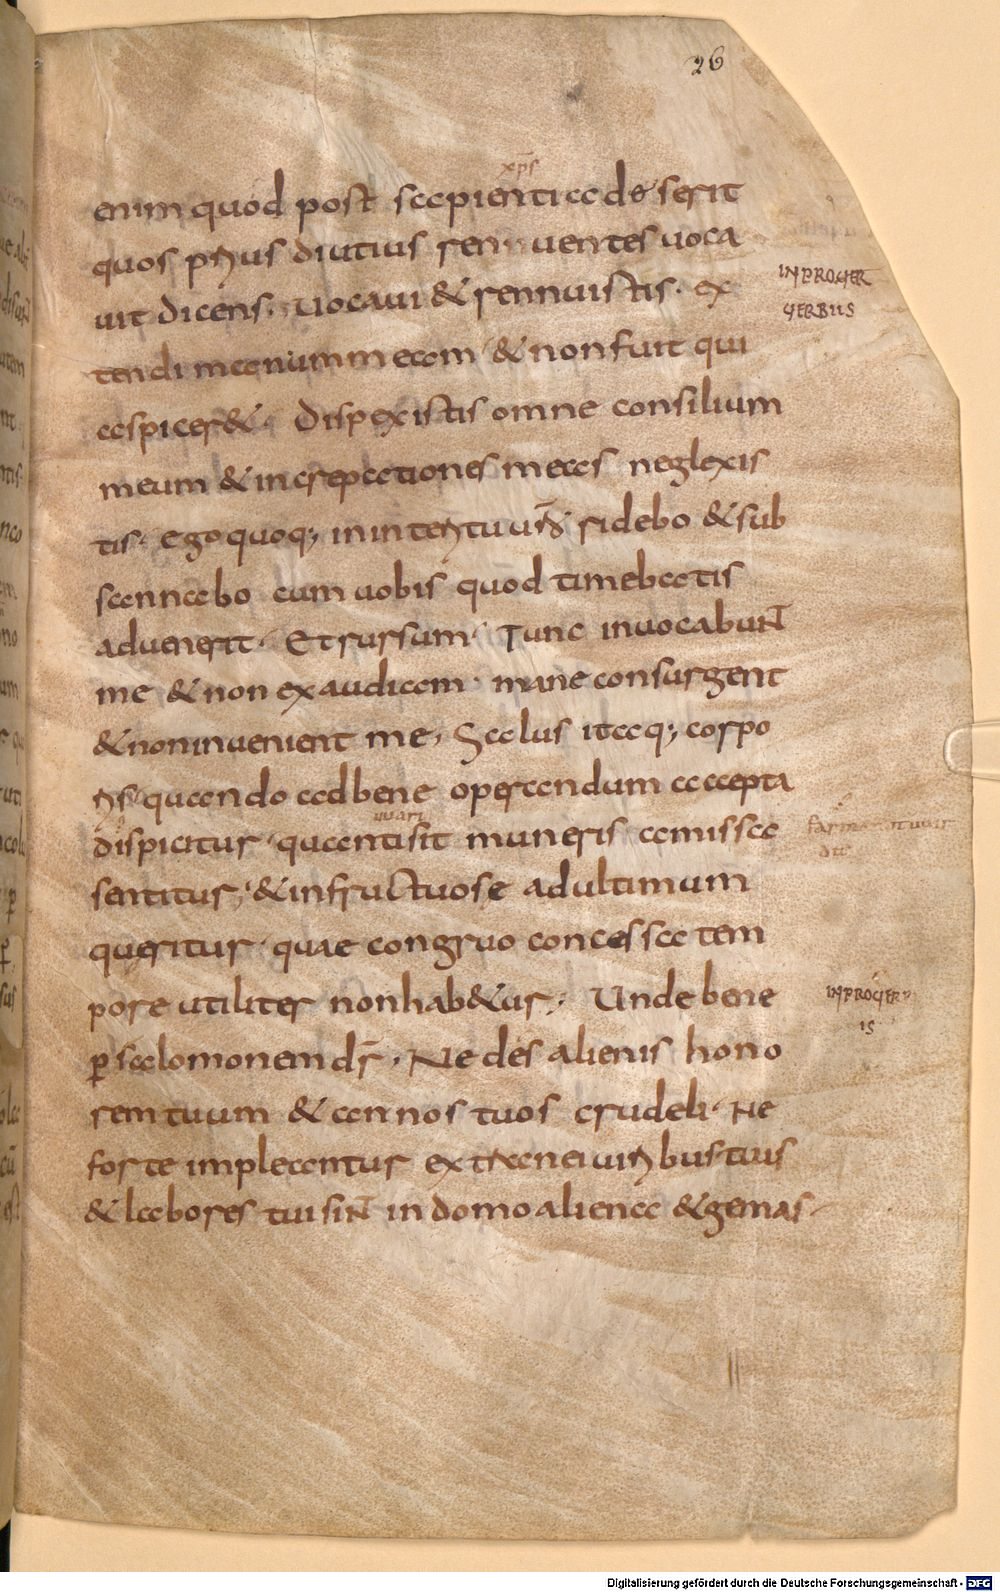 26
xp̄s
enim quod post sapientia deserit
quos prius diutius rennuentes uoca
uit dicens. Uocaui & rennuistis. ex
INPROUER
UERBIIS
tendi manum meam & non fuit qui
aspicer&. Dispexistis omne consilium
meum & increpationes meas neglexis
tis. ego quoq; in interitu ur̄o ridebo & sub
sannabo cum uobis quod timebatis
aduenerit. Et rursum. Tunc inuocabunt
me & non exaudiam. mane consurgent
& non inuenient me, Salus itaq; corpo
ris quando ad bene operandum accepta
dispicitur quanti sit muneris amissa
sentitur, & infructuose ad ultimum
queritur quae congruo concessa tem
pore utiliter non hab&ur; Unde bene
INPROUERB
IS
p̱ salomonem dr̄. Ne des alienis hono
rem tuum & annos tuos crudeli. Ne
forte impleantur extranei uiribus tuis
& labores tui sint in domo aliena & gemas.
Digitalisierung gefördert durch die Deutsche Forschungsgemeinschaft - DFG